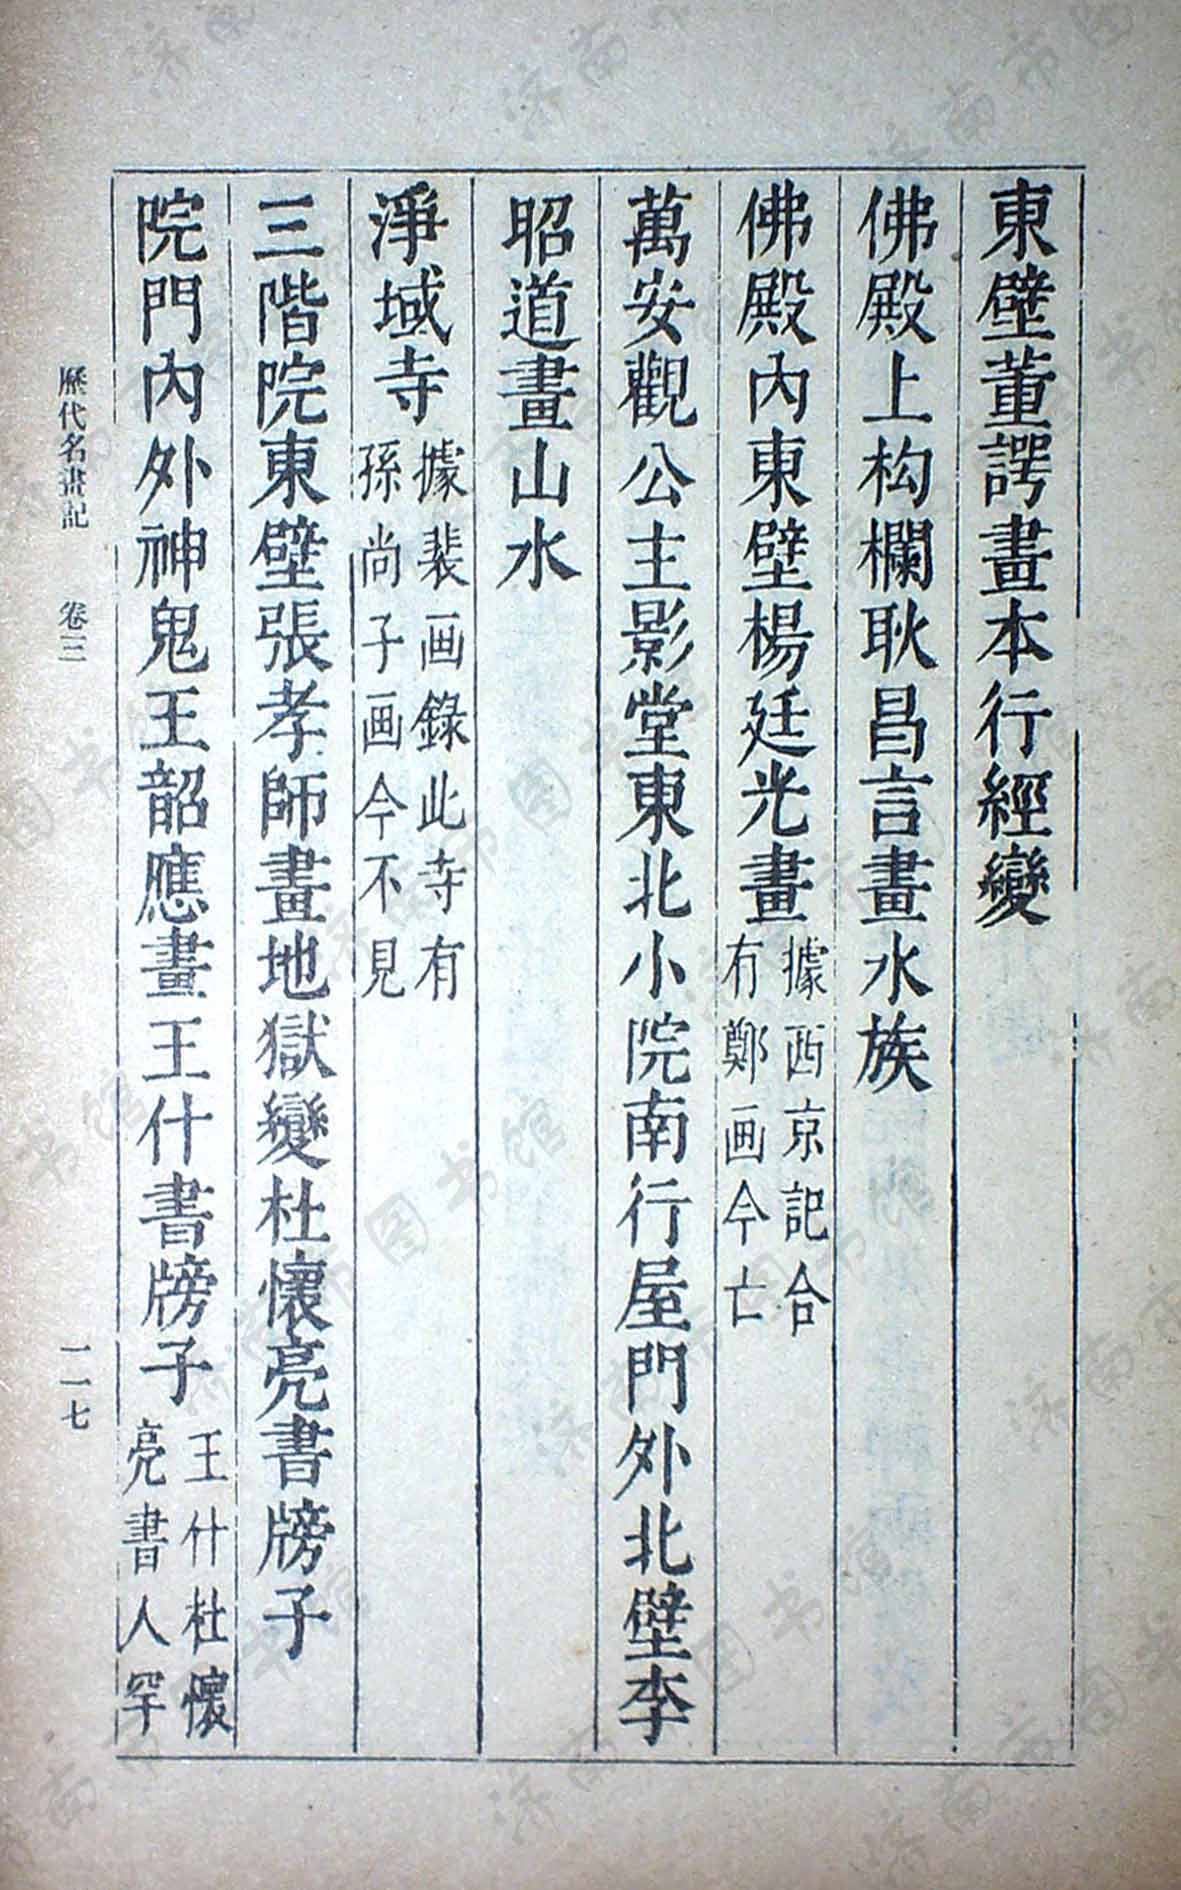 東壁董諤畫本行經變
佛殿上构欄耿昌言畫水族
佛殿內東壁楊廷光畫據西京記合
有鄭画今亡
萬安觀公主影堂東北小院南行屋門外北壁李
昭道畫山水
淨域寺據裴画錄此寺有
孫尚子画今不見
三階院東壁張孝師畫地獄變杜懷亮書牓子
院門內外神鬼王韶應畫王什書牓子王什杜懷
亮書人罕
歷代名畫記 卷三 一一七
济南市图书馆